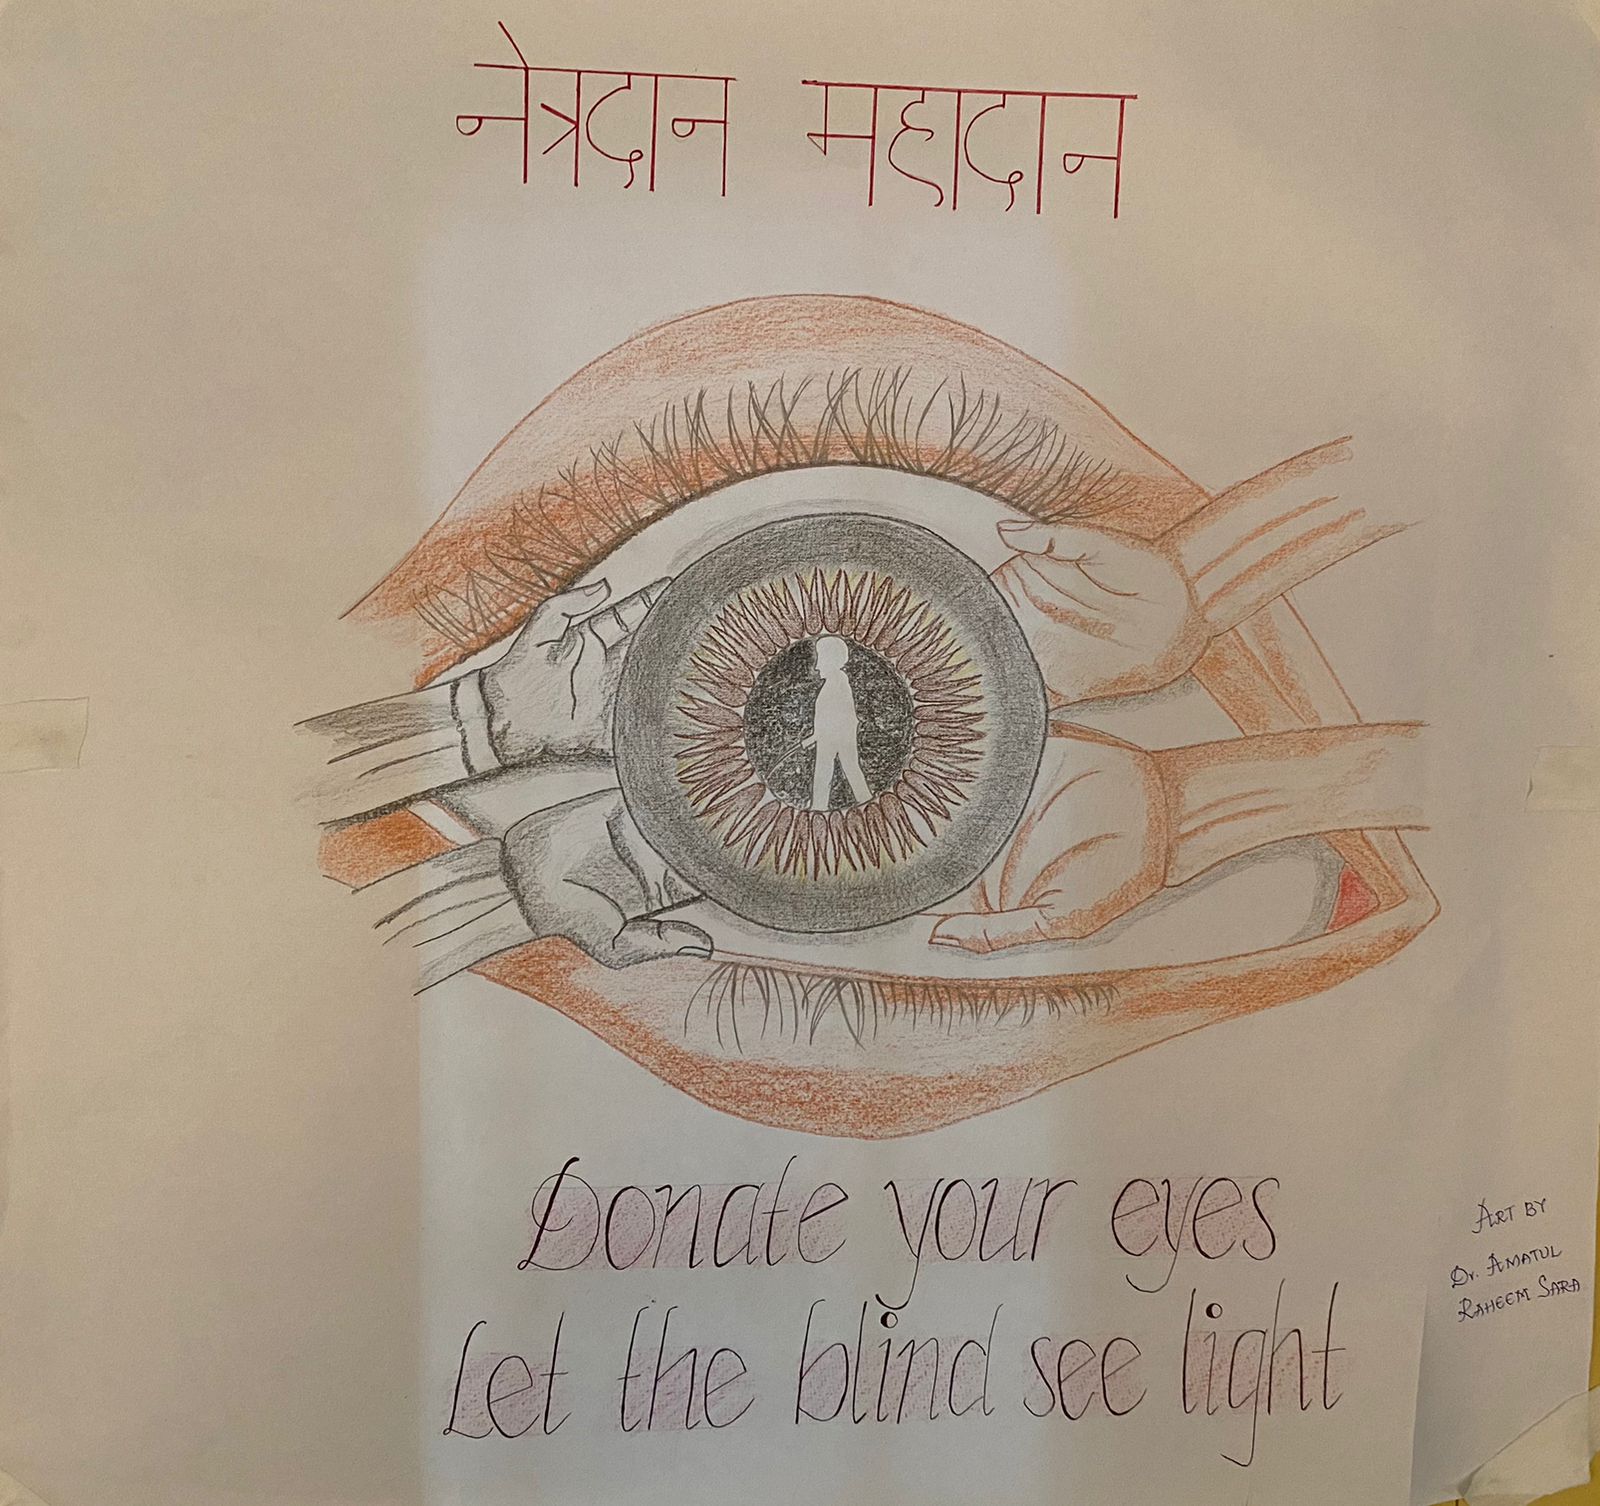 नेत्रदान महादान
Donate your eyes
Let the blind see light
ART BY
Dr. AMATUL
RAHEEM SARA